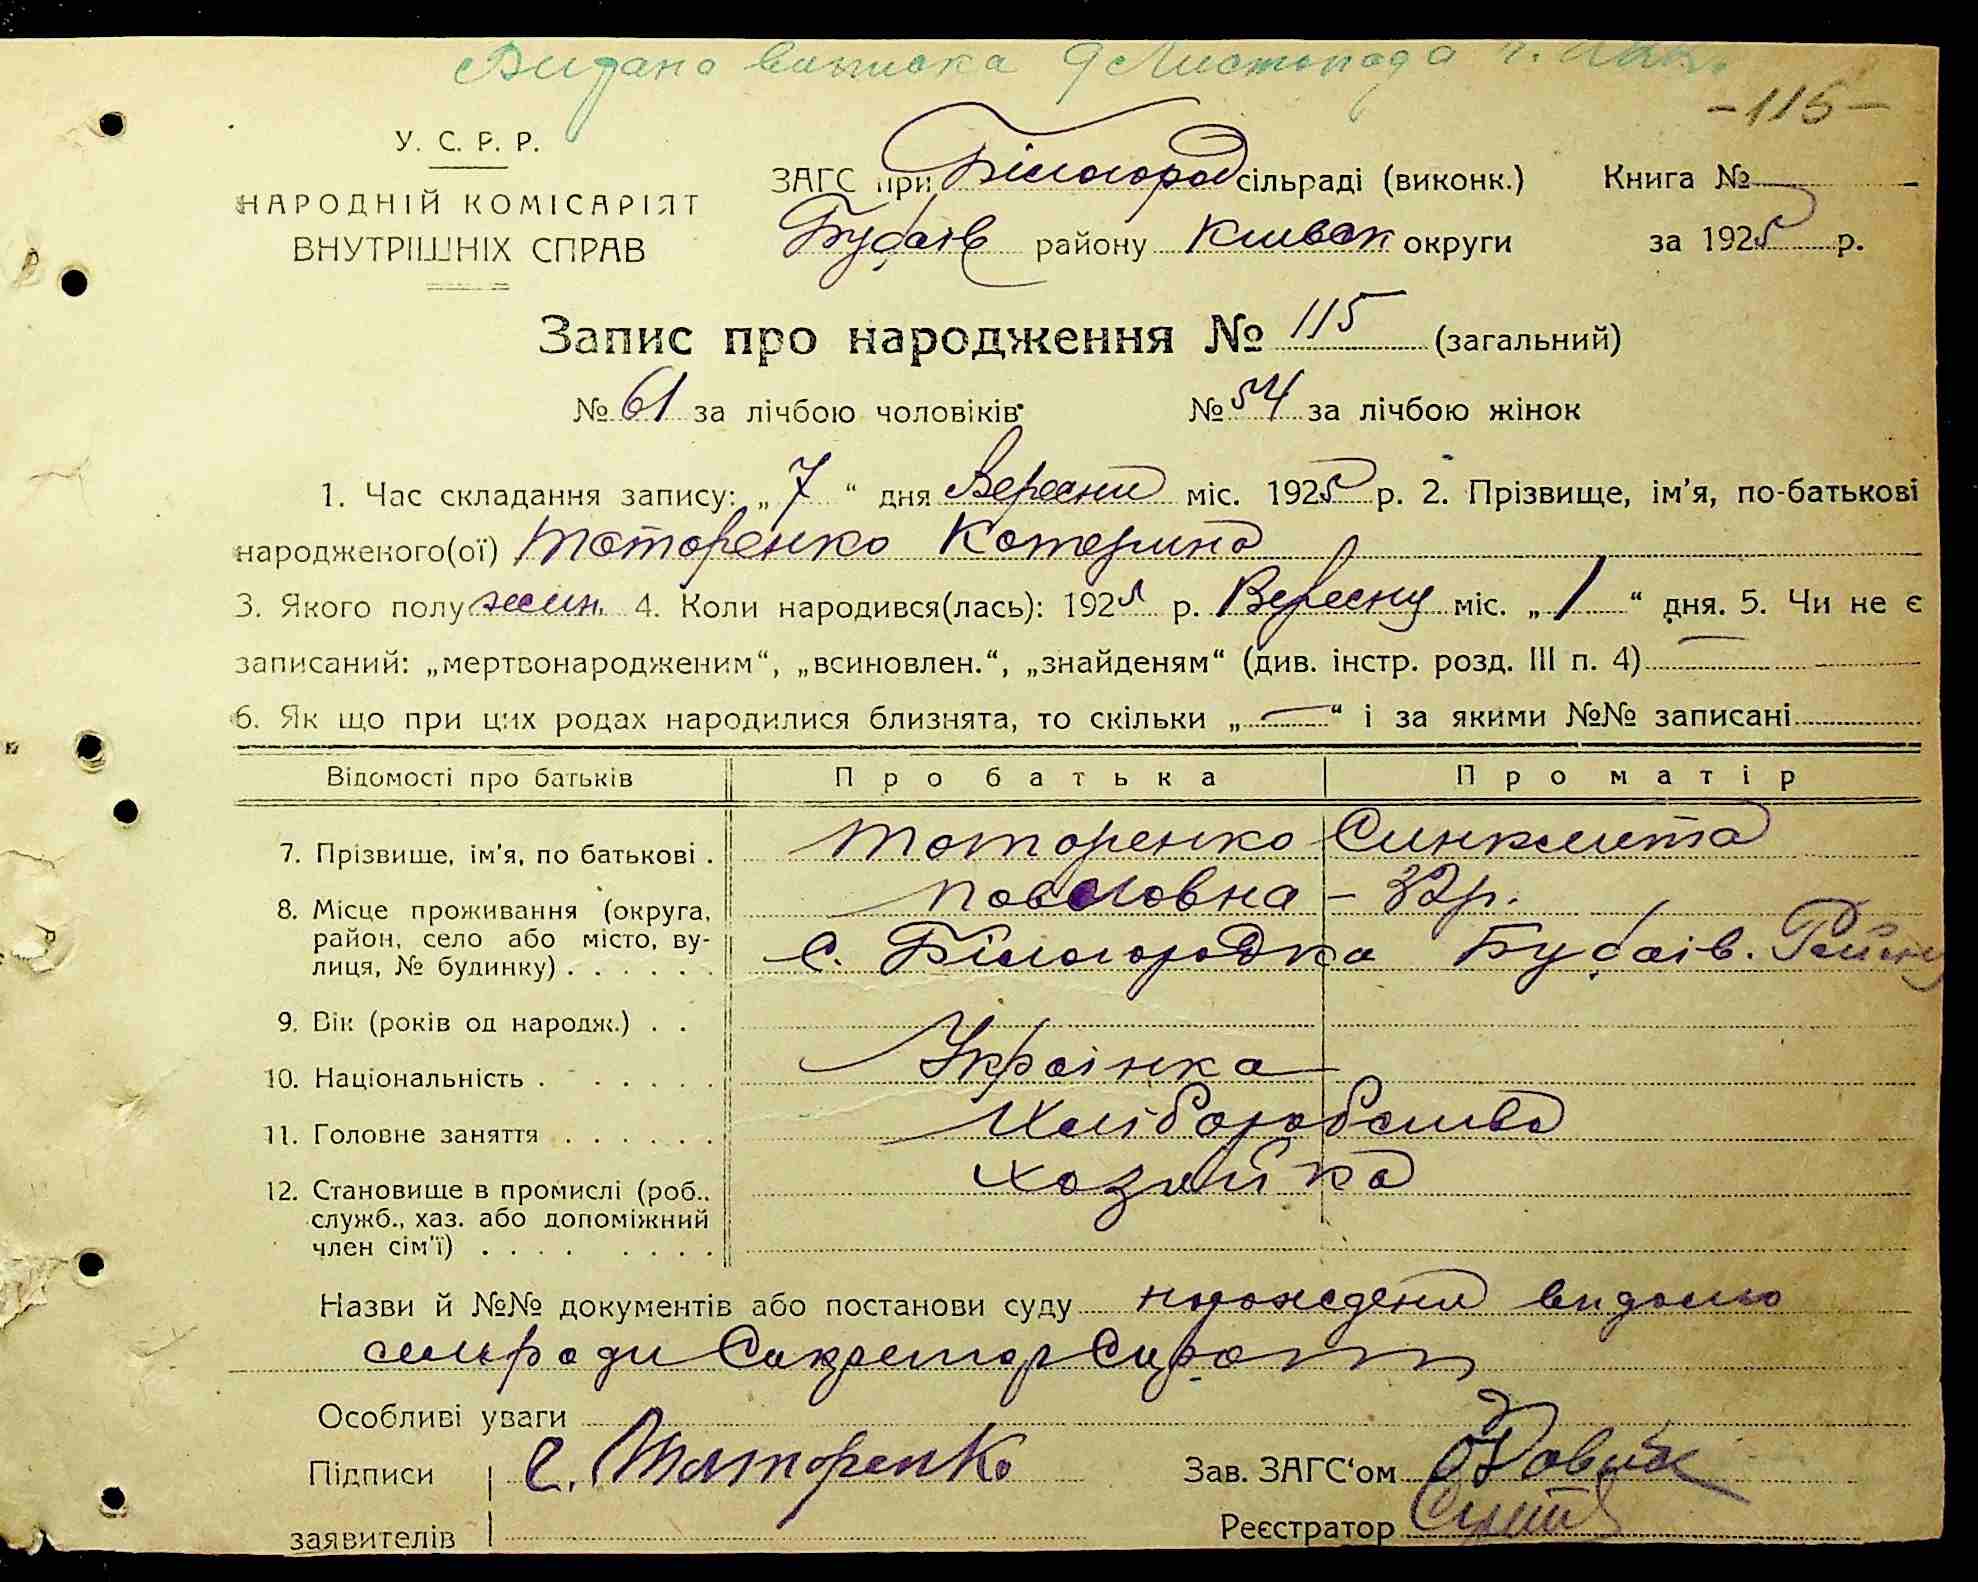 Видано виписка 9 Листопада
-115-
У. С. Р. Р.
НАРОДНІЙ КОМІСАРІЯТ
ВНУТРІШНІХ СПРАВ
ЗАГС при Білогород сільраді (виконк.) Книга №
Будаїв району Київск округи за 1925 р.
Запис про народження № 115 (загальний)
№ 61 за лічбою чоловіків № 54 за лічбою жінок
1. Час складання запису: „7“ дня Вересня міс. 1925 р. 2. Прізвище, ім'я, по-батькові
народженого(ої) Таторенко Катерина
3. Якого полу жин. 4. Коли народився(лась): 1925 р. Вересну міс. „1“ дня. 5. Чи не є
записаний: „мертвонародженим“, „всиновлен.“, „знайденям“ (див. інстр. розд. III п. 4) —
6. Як що при цих родах народилися близнята, то скільки „—“ і за якими №№ записані
Відомості про батьків Про батька Про матір
7. Прізвище, ім'я, по батькові . Таторенко Синклита
Павловна – 32 р.
8. Місце проживання (округа,
район, село або місто, ву-
лиця, № будинку) . . . . . . с. Білогородка Будаїв. Району
9. Вік (років од народж.) . .
10. Національність . . . . . . Українка
11. Головне заняття . . . . . . Хліборобства
12. Становище в промислі (роб.,
служб., хаз. або допоміжний
член сім'ї) . . . . . . . . Хозяйка
Назви й №№ документів або постанови суду
сільради Сикретар
Особливі уваги
Підписи С. Таторенко Зав. ЗАГС'ом
заявителів Реєстратор